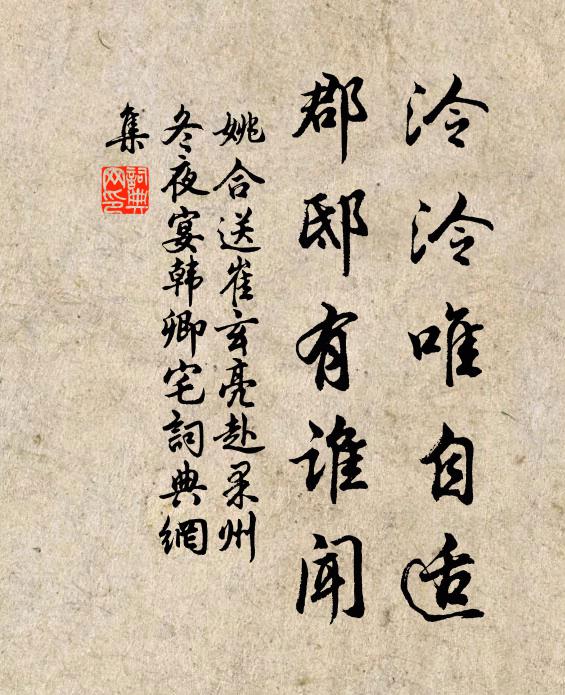 泠泠唯自适
郡邸有谁闻
姚合送崔玄亮赴果州
冬夜宴韩卿宅詞典網
集
詞典
网印